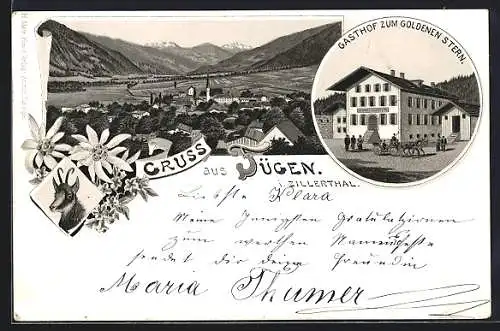 GASTHOF ZUM GOLDENEN STERN.
GRUSS AUS FÜGEN.
I. ZILLERTHAL.
Liebste Klara
Meine Innigsten Gratulazionen
zum werthen Namensfeste
sendet dir deine Freundin
Maria Thumer